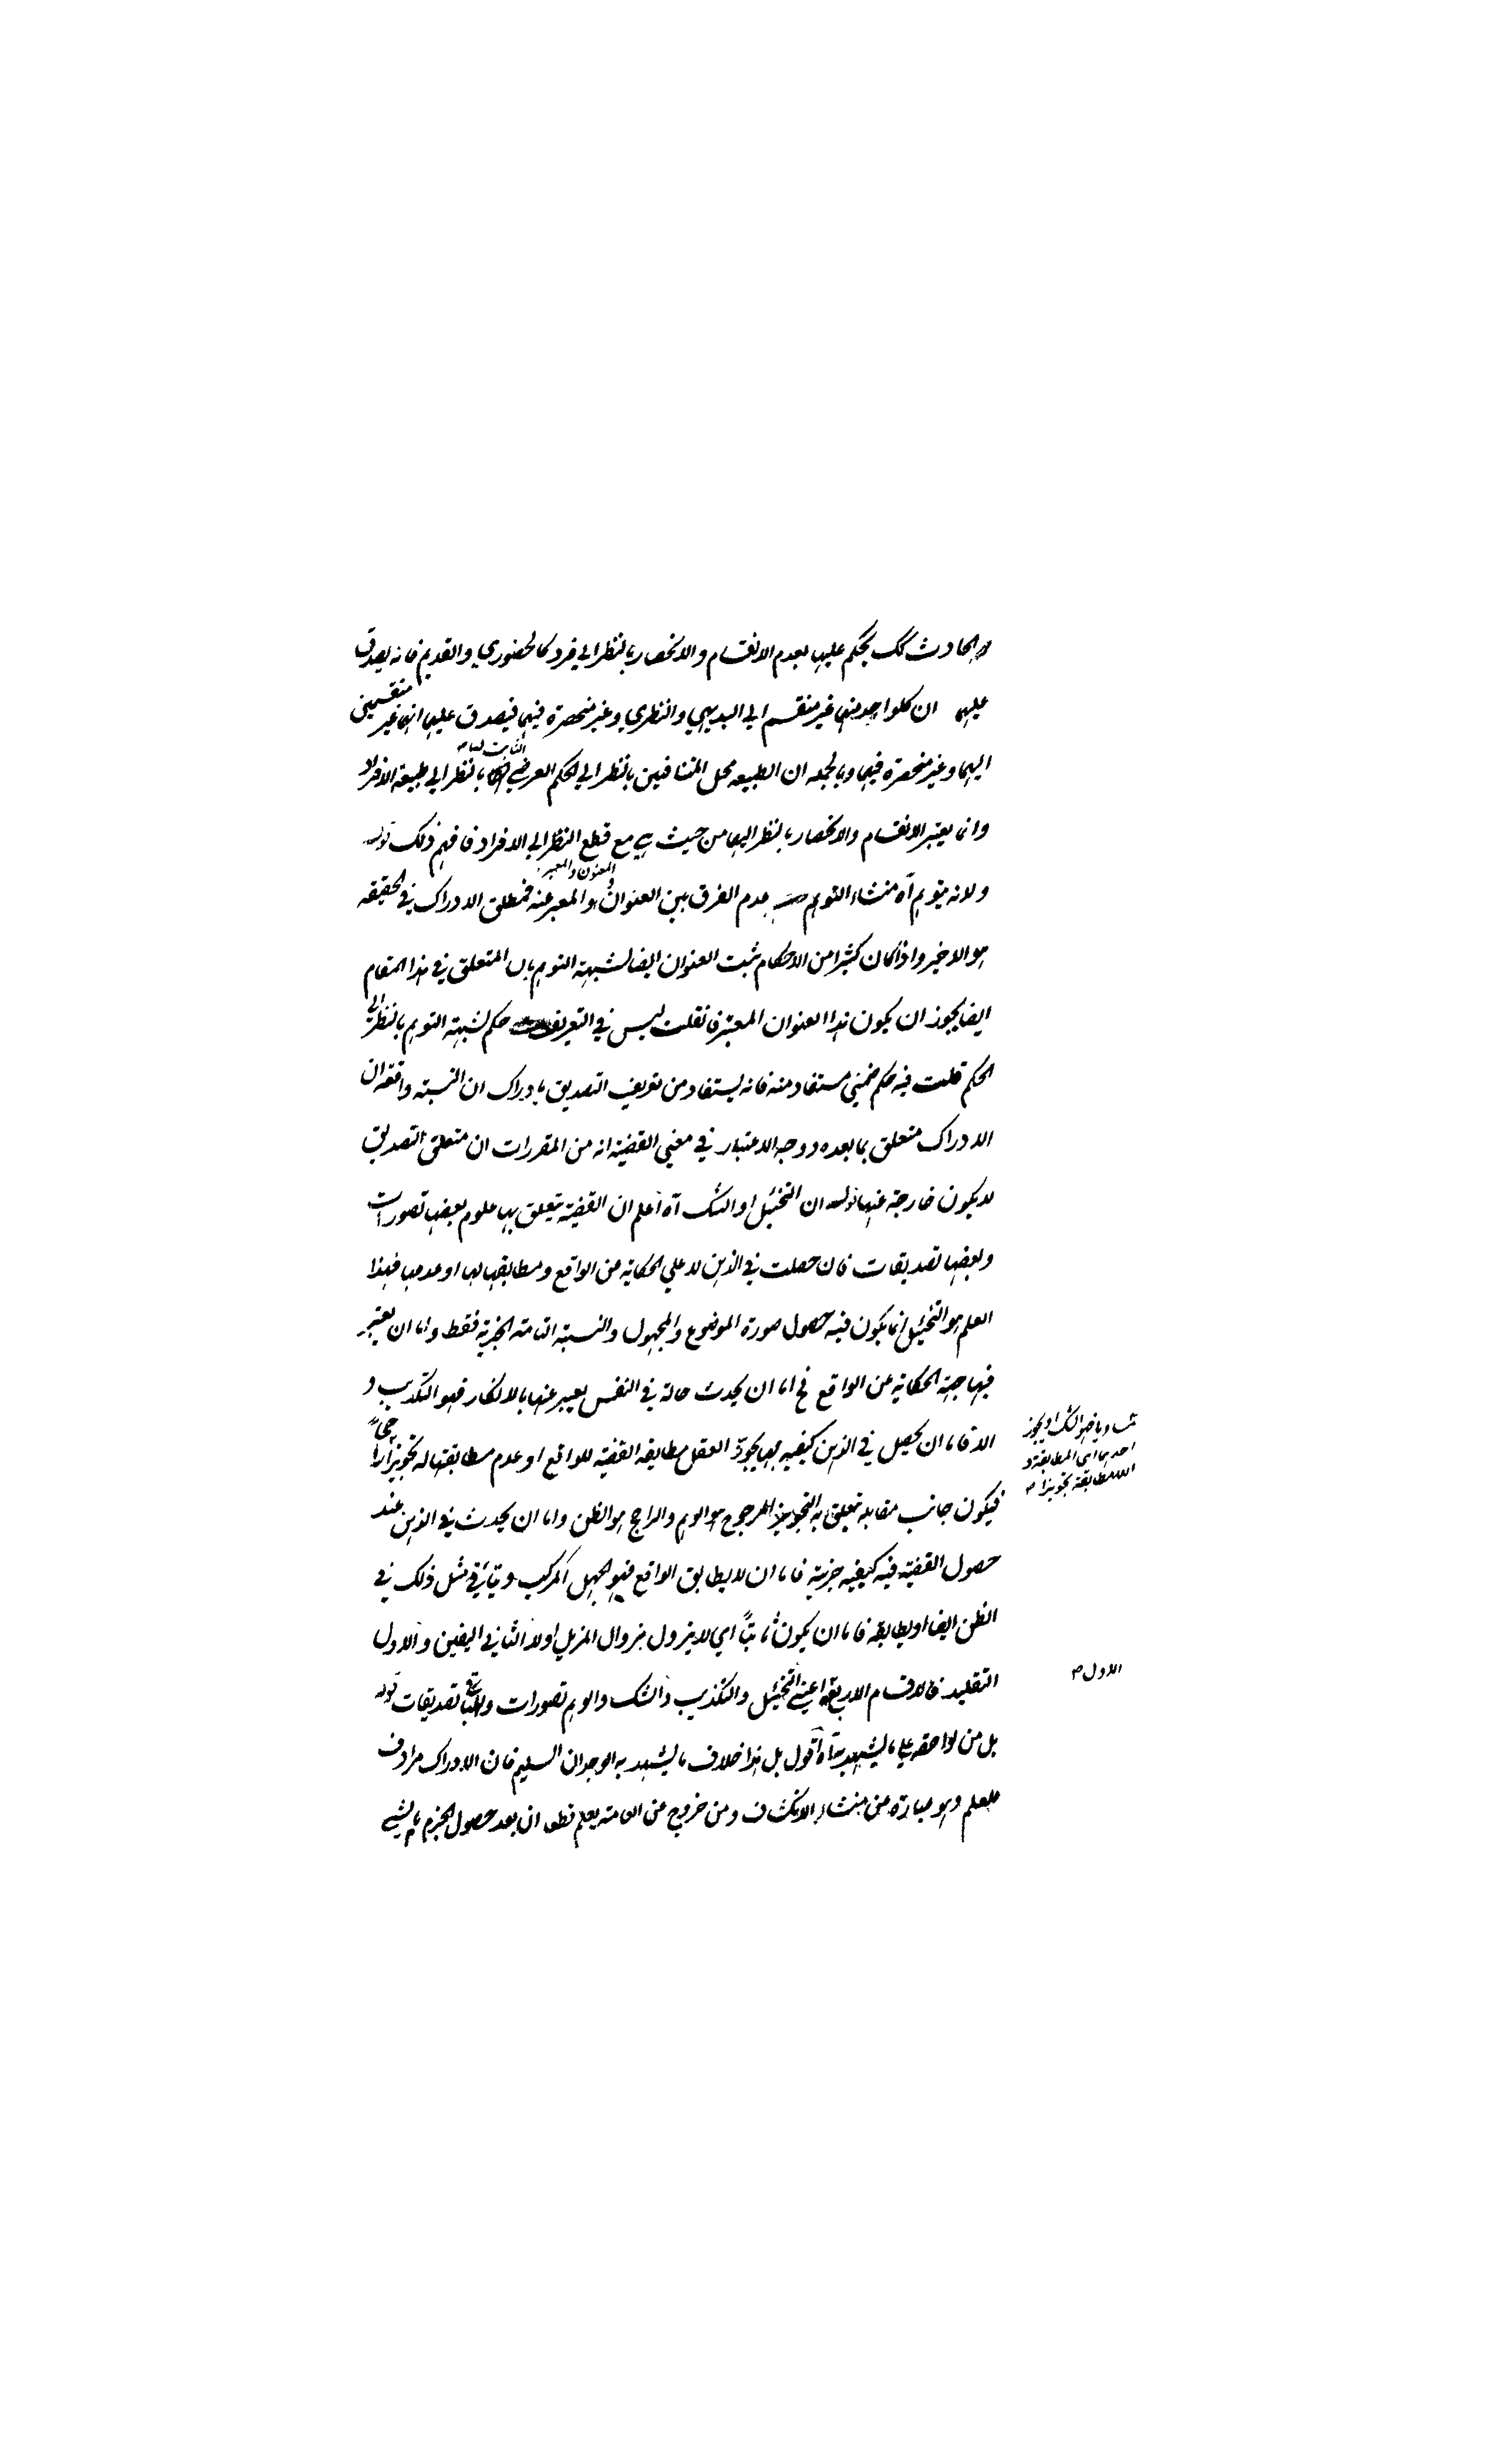 والحادث كك يحكم عليها بعدم الانقسام والانحصار بالنظر الى فرد كالحضوري والقديم فانه يصدق
عليها ان كلواحد منها غير منقسم الى البديهي والنظري وغير منحصرة فيها فيصدق عليها انها غير منقسمين
اليهما وغير منحصرة فيهما وبالجمله ان الطبيعه محل المتنافيين بالنظر الى الحكم العرضي الثابت لها بالنظر الى طبيعة الافراد
وانما يعتبر الانقسام والانحصار بالنظر اليها من حيث هي مع قطع النظر الى الافراد فافهم ذلك قوله
ولانه يتوهم آه منشاء التوهم عدم الفرق بين العنوان والمعنون والمعبر والمعبر عنه فمطلق الادراك في الحقيقه
هو الاخير واذا كان كثيرا من الاحكام ثبت العنوان ايضا لشبهة التوهم بان المتعلق في هذا المقام
ايضا يجوز ان يكون هذا العنوان المعتبر فانقلت ليس في التعريف حكم لشبهة التوهم بالنظر الى
الحكم قلت فيه حكم ضمني مستفاد منه فانه يستفاد من تعريف التصديق بادراك ان النسبة واقعة ان
الادراك متعلق بما بعده ووجه الاعتبار في معنى القضية انه من المقررات ان متعلق التصديق
لا يكون خارجة عنها قوله ان التخئيل او الشك آه اعلم ان القضية يتعلق بها علوم بعضها تصورات
وبعضها تصديقات فان حصلت في الذهن لا على الحكاية من الواقع ومطابقتها لها او عدمها فهذا
العلم هو التخئيل انما يكون فيه حصول صورة الموضوع والمجهول والنسبة التامة الخبرية فقط واما ان يعتبر
فيها جهة الحكاية عن الواقع فح اما ان يحدث حالة في النفس يعبر عنها بالانكار فهو التكذيب و
الا فاما ان يحصل في الذهن كيفيه بها يجوّز العقل مطابقه القضية للواقع او عدم مطابقتها له تجويزا راجحاً
تساويا فهو الشك او يجوز
احدهما اى المطابقة و
اللامطابقة تجويزا
فيكون جانب مقابله تعلق به التجويز المرجوح هو الوهم والراجح هو الظن واما ان يحدث في الذهن عند
حصول القضية فيه كيفيه جزمية فاما ان لا يطابق الواقع فهو الجهل المركب ويتأتى مثل ذلك في
الظن ايضا او يطابقه فاما ان يكون ثابتاً اي لا يزول بزوال المزيل اولا الثاني اليقين والاول
الاول
التقليد فالاقسام الاربعة اعني التخئيل والتكذيب والشك والوهم تصورات والباقية تصديقات قوله
بل من لواحقه على ما يشهد به آه اقول بل هذا خلاف ما يشهد به الوجدان السليم فان الادراك مرادف
للعلم وهو عبارة عن منشاء الانكشاف ومن خروج عن العامة يعلم قطعا ان بعد حصول الجزم بالشيء